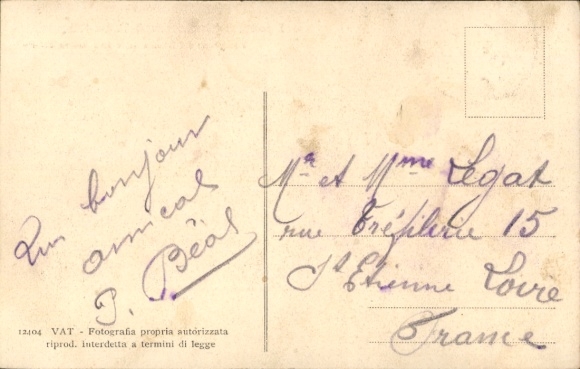 Un bonjour
amical
P. Béal
12404 VAT - Fotografia propria autorizzata
riprod. interdetta a termini di legge
Mr et Mme Legat
rue Tréfilerie 15
St Etienne Loire
France